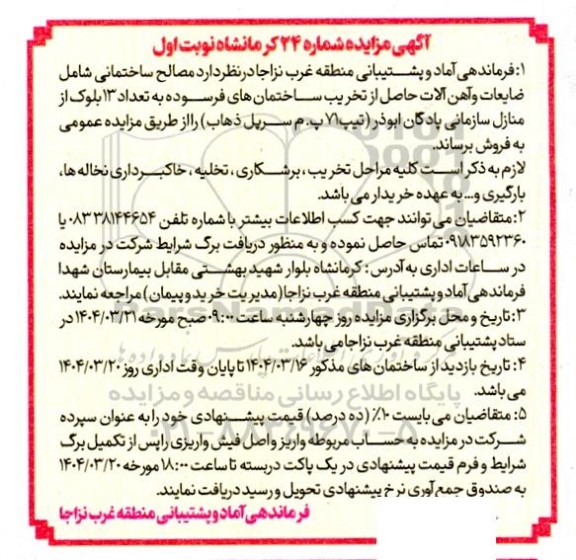 آگهی مزایده شماره ۲۴ کرمانشاه نوبت اول
۱: فرماندهی آماد و پشتیبانی منطقه غرب نزاجا در نظر دارد مصالح ساختمانی شامل
ضایعات و آهن آلات حاصل از تخریب ساختمان های فرسوده به تعداد ۱۳ بلوک از
منازل سازمانی پادگان ابوذر (تیپ ۷۱ پ . م سرپل ذهاب) را از طریق مزایده عمومی
به فروش برساند.
لازم به ذکر است کلیه مراحل تخریب ، برشکاری ، تخلیه ، خاکبرداری نخاله ها،
بارگیری و... به عهده خریدار می باشد.
۲: متقاضیان می توانند جهت کسب اطلاعات بیشتر با شماره تلفن ۰۸۳۳۸۱۴۴۶۵۴ یا
۰۹۱۸۳۵۹۲۳۶۰ تماس حاصل نموده و به منظور دریافت برگ شرایط شرکت در مزایده
در ساعات اداری به آدرس: کرمانشاه بلوار شهید بهشتی مقابل بیمارستان شهدا
فرماندهی آماد و پشتیبانی منطقه غرب نزاجا (مدیریت خرید و پیمان) مراجعه نمایند.
۳: تاریخ و محل برگزاری مزایده روز چهارشنبه ساعت ۰۹:۰۰ صبح مورخه ۱۴۰۴/۰۳/۲۱ در
ستاد پشتیبانی منطقه غرب نزاجا می باشد.
۴: تاریخ بازدید از ساختمان های مذکور ۱۴۰۴/۰۳/۱۶ تا پایان وقت اداری روز ۱۴۰۴/۰۳/۲۰
می باشد.
۵: متقاضیان می بایست ۱۰٪ (ده درصد) قیمت پیشنهادی خود را به عنوان سپرده
شرکت در مزایده به حساب مربوطه واریز و اصل فیش واریزی را پس از تکمیل برگ
شرایط و فرم قیمت پیشنهادی در یک پاکت دربسته تا ساعت ۱۸:۰۰ مورخه ۱۴۰۴/۰۳/۲۰
به صندوق جمع آوری نرخ پیشنهادی تحویل و رسید دریافت نمایند.
فرماندهی آماد و پشتیبانی منطقه غرب نزاجا
ParsNamadData
پایگاه اطلاع رسانی مناقصه و مزایده
۰۲۱-۸۸۳۴۹۶۷۰-۵